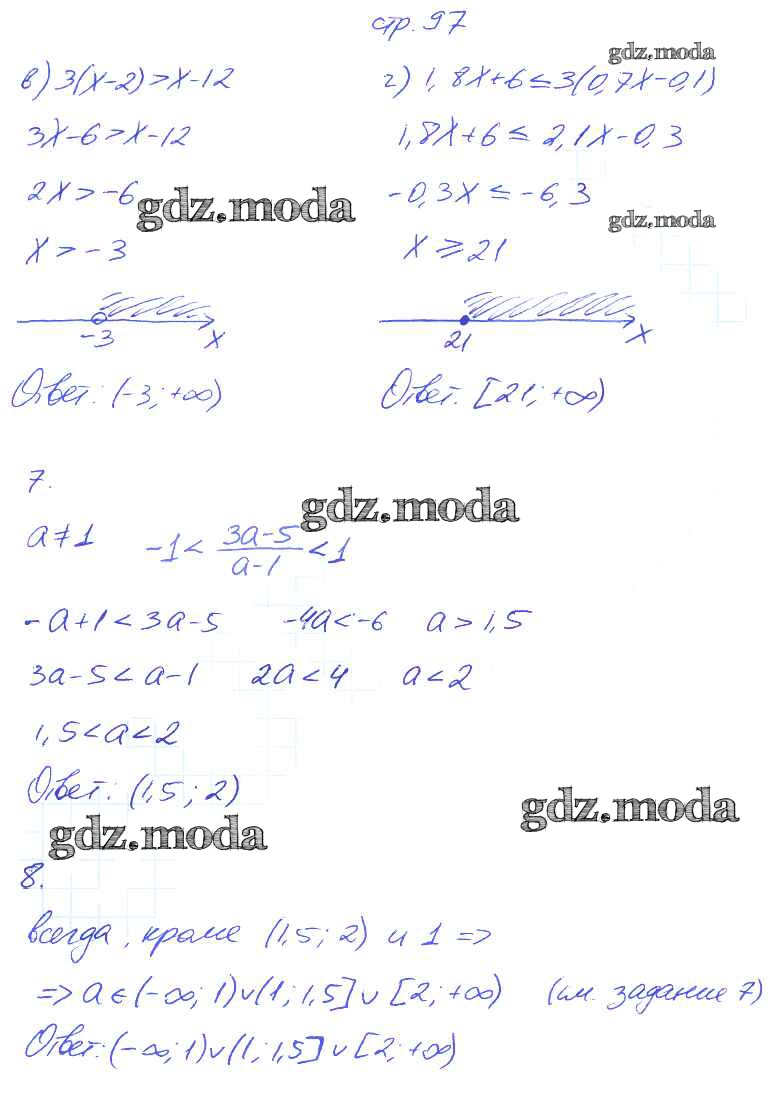 стр. 97
gdz.moda
в) 3(x-2)>x-12
3x-6>x-12
2x>-6
gdz.moda
x>-3
-3 x
Ответ: (-3; +∞)
г) 1,8x+6≤3(0,7x-0,1)
1,8x+6≤2,1x-0,3
-0,3x≤-6,3
gdz.moda
x≥21
21 x
Ответ: [21; +∞)
7.
gdz.moda
a≠1 -1< (3a-5)/(a-1) <1
-a+1<3a-5 -4a<-6 a>1,5
3a-5<a-1 2a<4 a<2
1,5<a<2
Ответ: (1,5; 2)
gdz.moda
gdz.moda
8.
всегда, кроме (1,5; 2) и 1 =>
=> a∈(-∞; 1)∪(1; 1,5]∪[2; +∞) (см. задание 7)
Ответ: (-∞; 1)∪(1; 1,5]∪[2; +∞)